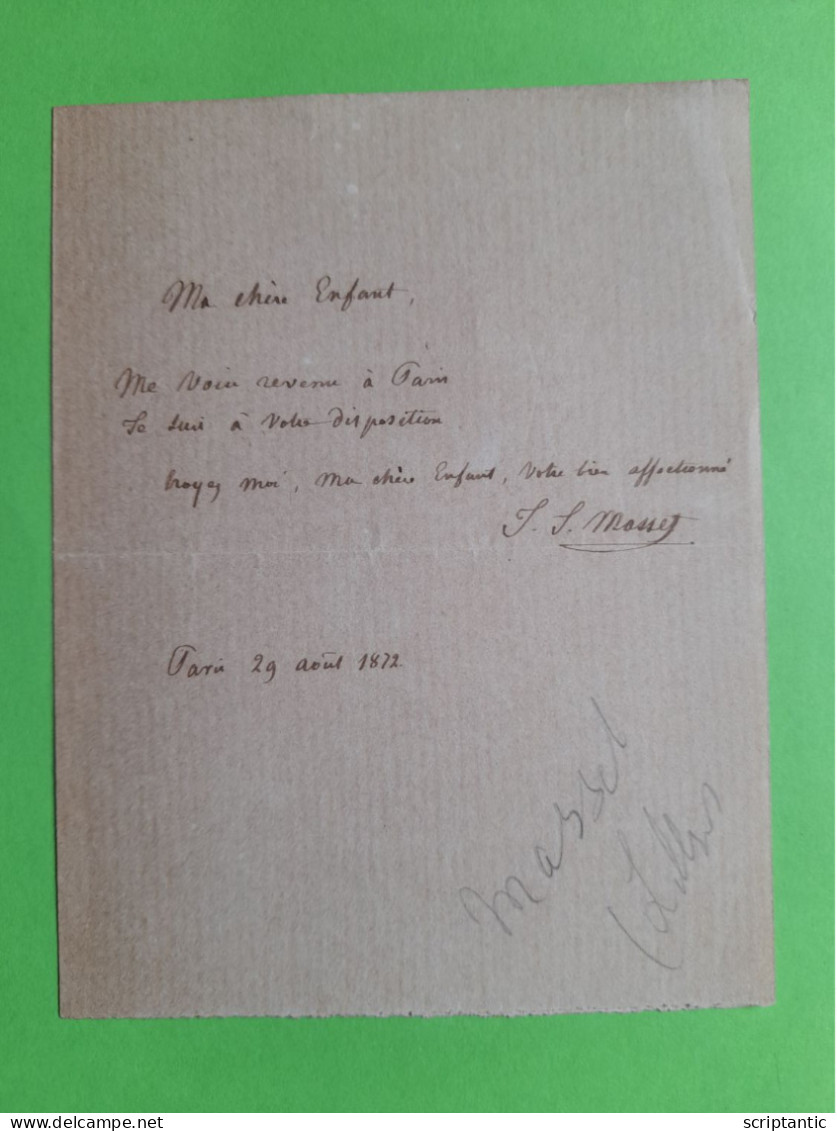 Ma chère Enfant,
Me voici revenu à Paris
Je suis à votre disposition
Croyez moi, Ma chère Enfant, Votre bien affectionné
J. J. Masset
Paris 29 août 1872
Masset
scriptantic